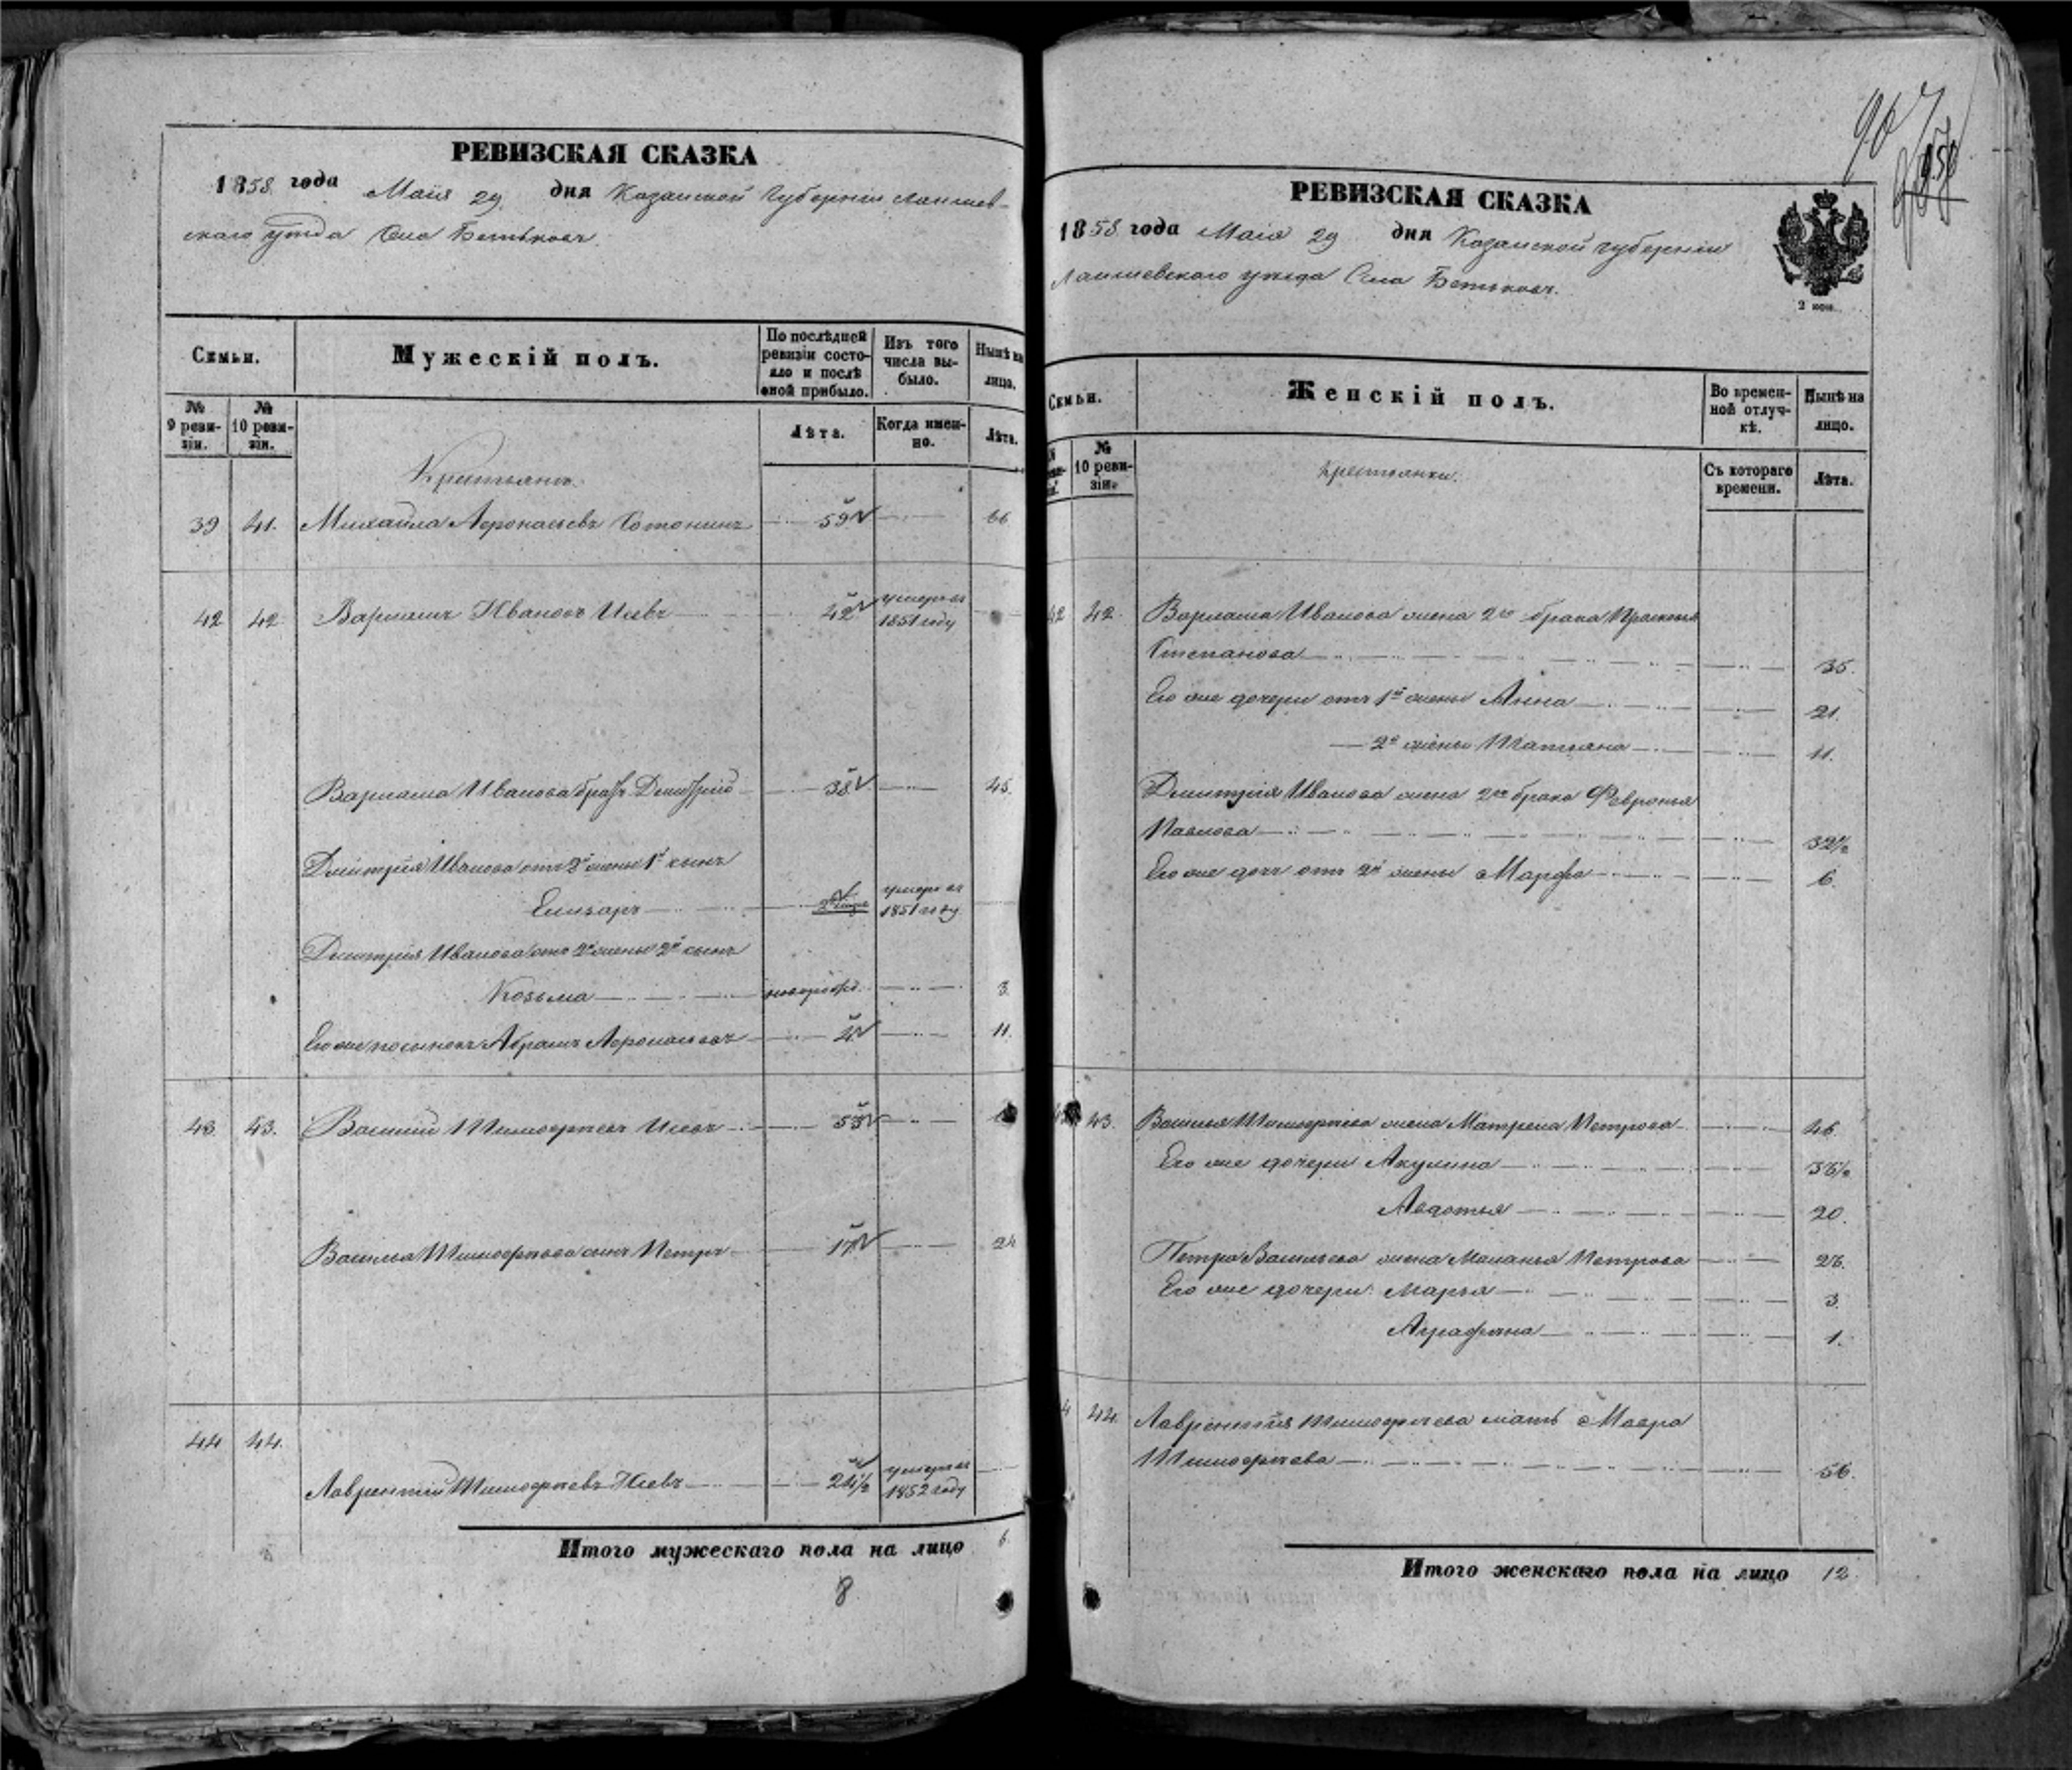 РЕВИЗСКАЯ СКАЗКА
1858 года Маія 29 дня Казанской Губерніи Лаишев-
скаго уѣзда Села Бетьковъ.
Семьи.
Мужескій полъ.
По послѣдней ревизіи состояло и послѣ оной прибыло.
Изъ того числа выбыло.
Нынѣ на лицо.
№ 9 ревизіи.
№ 10 ревизіи.
Лѣта.
Когда именно.
Лѣта.
Крестьянъ.
39 41. Михайла Афонасьевъ 59 66
42 42 Варламъ Ивановъ Исевъ 42 умеръ въ
1851 году
Варлама Иванова братъ Дмитрій 38 45.
Дмитрія Иванова отъ 2й жены 1й сынъ
Елизаръ умеръ въ
1851 году
Дмитрія Иванова отъ 2й жены 2й сынъ
Козьма новорожд. 3
Его же пасынокъ Абрамъ Афонасьевъ 4 11.
43 43. Василій Тимофѣевъ Исевъ 53
Василья Тимофѣева сынъ Петръ 17 24
44 44.
Лаврентій Тимофѣевъ Исевъ 24½ умеръ въ
1852 году
Итого мужескаго пола на лицо 6
8
967
РЕВИЗСКАЯ СКАЗКА
1858 года Маія 29 дня Казанской губерніи
Лаишевскаго уѣзда Села Бетьковъ.
2 коп.
Семьи.
Женскій полъ.
Во временной отлучкѣ.
Нынѣ на лицо.
№ 10 ревизіи.
Съ котораго времени.
Лѣта.
Крестьянки.
42 42. Варлама Иванова жена 2го брака Прасковья
Степанова 35.
Его же дочери отъ 1й жены Анна 21.
2й жены Татьяна 11.
Дмитрія Иванова жена 2го брака Февронья
Павлова 32½
Его же дочь отъ 2й жены Марфа 6.
43. Василья Тимофѣева жена Матрена Петрова 46.
Его же дочери Акулина
Авдотья 20.
Петра Васильева жена Маланья Петрова 26.
Его же дочери Марья 3
Аграфѣна 1.
4 44. Лаврентія Тимофѣева мать Мавра
Тимофѣева 56.
Итого женскаго пола на лицо 12